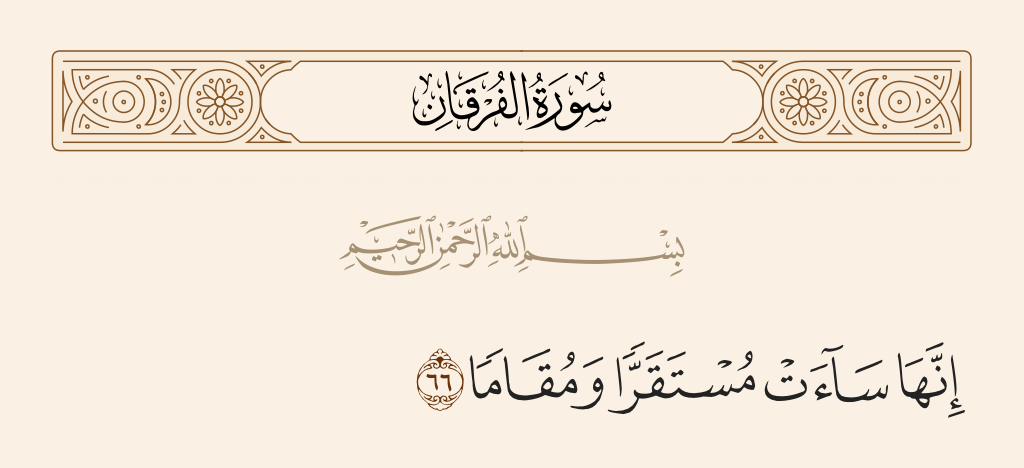 سُورَةُ الفُرْقَانِ
بِسْمِ ٱللَّهِ ٱلرَّحْمَٰنِ ٱلرَّحِيمِ
إِنَّهَا سَآءَتْ مُسْتَقَرًّا وَمُقَامًا ٦٦